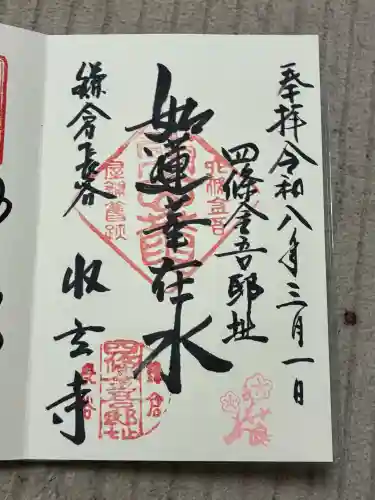 奉拝 令和八年三月一日
四條金吾邸址
如蓮華在水
鎌倉長谷
收玄寺
四條金吾
屋敷舊跡
四條金吾邸址
鎌倉
長谷